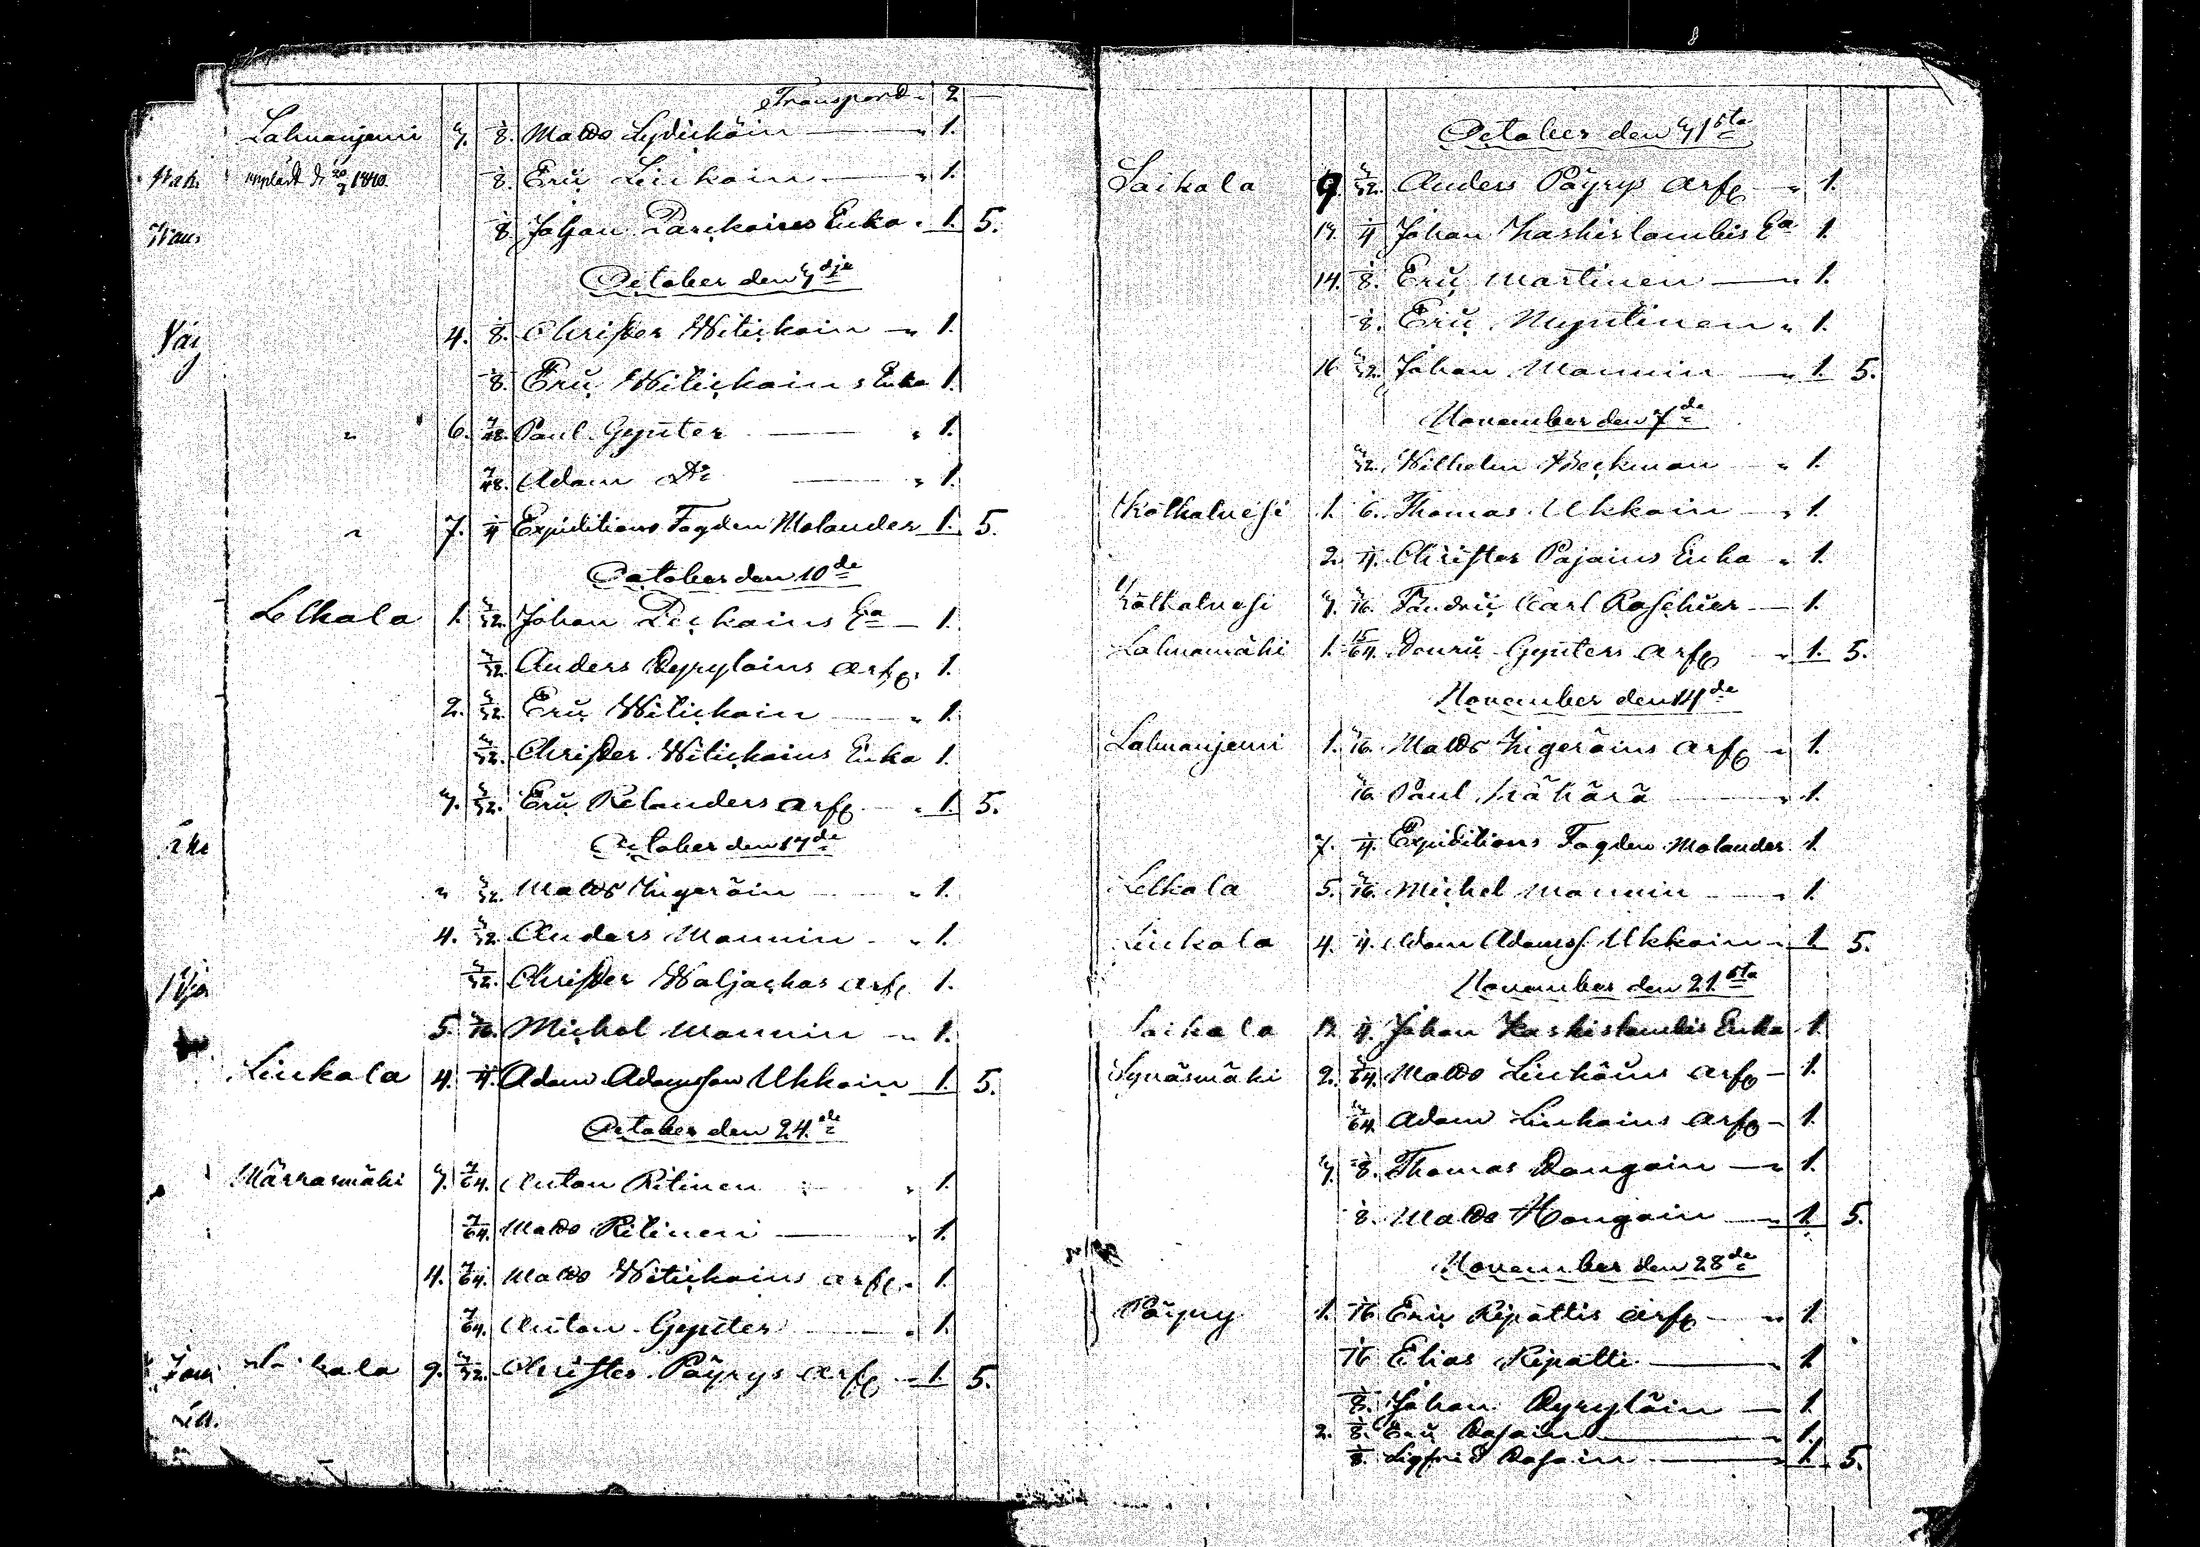 Transport 2
Lahnanjemi 3. 1/8. Matts Lydickäin 1.
1/8. Eric Liukain 1.
1840.
1/8 Johan Parckoises Enka 1. 5.
October den 3dje
4. 1/8. Christer Witickain 1.
1/8. Eric Witickains Enka 1.
" 6. 7/48. Paul Gynter 1.
7/48. Adam Do 1.
" 7. 1/4 Expeditions Fogden Molander 1. 5.
October den 10de
Lelkala 1. 3/32. Johan Pickains Ea 1.
3/32. Anders Pyrylains arfe. 1.
2. 3/32. Eric Witickain 1.
3/32. Christer Witickains Enka 1.
3. 3/32. Eric Relanders arfe 1. 5.
October den 17de
" 3/32. Matts Kigeräin 1.
4. 3/32. Anders Mannin 1.
3/32. Christer Waljackas arfe 1.
5. 3/16. Michel Mannin 1.
Liukala 4. 1/4. Adam Adamsson Ukkain 1. 5.
October den 24de
Märkasmäki 3. 7/64. Anton Ritinen 1.
7/64. Matts Ritinen 1.
4. 7/64. Matts Witickains arfe 1.
7/64. Anton Gynter 1.
Saikala 9. 3/32. Christer Päyrys arfe 1. 5.
8
October den 31sta
Saikala 9. 3/32. Anders Päyrys arfe 1.
13. 1/4 Johan Kaskislambis Ea 1.
14. 1/8. Eric Martinen 1.
1/8. Eric Nuputinen 1.
16 3/32. Johan Mannin 1. 5.
November den 7de
3/32. Wilhelm Beckman 1.
Kälkaluesi 1. 6. Thomas Ukkain 1.
2. 1/4. Christer Pajains Enka 1.
Kälkaluesi 3. 3/16. Fändric Carl Roschier 1.
Lahnamäki 1. 15/64. Henric Gynters arfe 1. 5.
November den 14de
Lahnanjemi 1. 3/16. Matts Kigeräins arfe 1.
3/16. Paul Kähärä 1.
7. 1/4. Expeditions Fogden Molander 1.
Lelkala 5. 3/16. Michel Mannin 1.
Liukala 4. 1/4. Adam Adamss. Ukkain 1. 5.
November den 21sta
Saikala 13. 1/4. Johan Kaskislambis Enka 1.
Synäsmäki 2. 3/64. Matts Liukäins arfe 1.
3/64. Adam Liukains arfe 1.
3. 1/8. Thomas Hangain 1.
1/8. Matts Hangain 1. 5.
November den 28de
Päyry 1. 1/16 Eric Ripattis arfe 1.
1/16 Elias Ripatti 1.
1/8. Johan Pyryläin 1.
2. 1/8. Eric Pasain 1.
1/8. Sigfrid Pasain 1. 5.